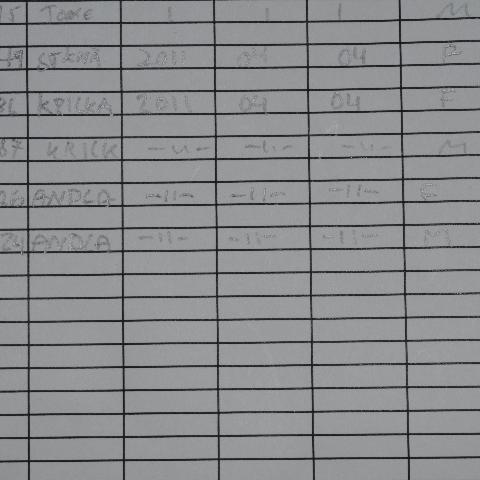 15 TOOKE I I I M
49 2011 04 04 F
86 KRICKA 2011 04 04 F
87 KRICK -11- -11- -11- M
26 ANDCA -11- -11- -11- F
24 ANDCA -11- -11- -11- M